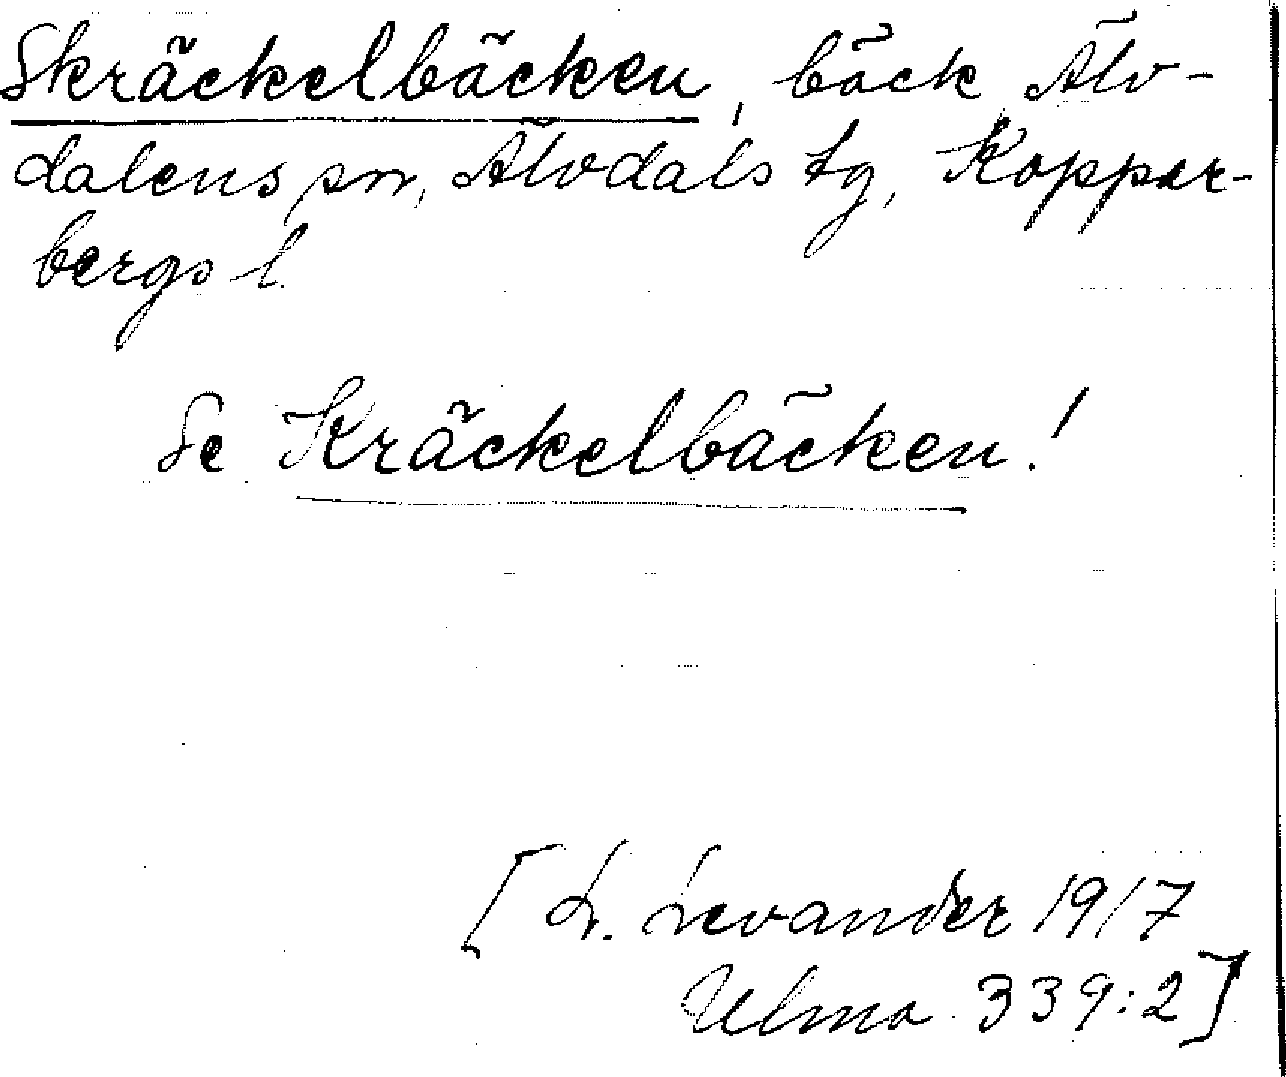 Skräckelbäcken, bäck Älv-
dalens sn, Älvdals tg, Koppar-
bergs l.
Se Kräckelbäcken!
[L. Levander 1917
Ulma 339:2]